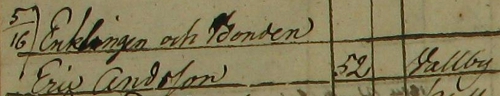 5/16 Enklingen och Bonden
Eric Andsson 52 Vallby